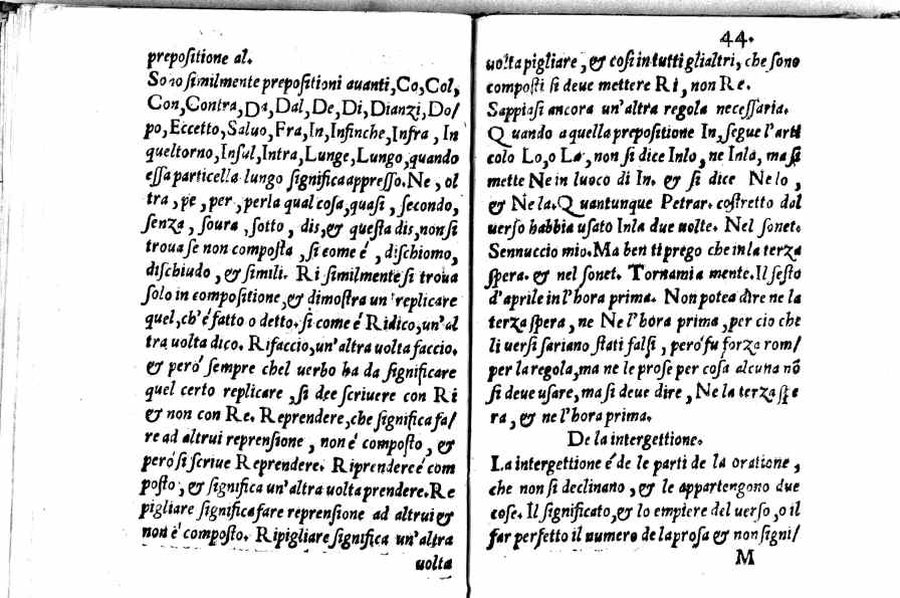 prepositione al.
Sono similmente prepositioni auanti, Co, Col,
Con, Contra, Da, Dal, De, Di, Dianzi, Do/
po, Eccetto, Saluo, Fra, In, Infinche, Infra, In
queltorno, Insul, Intra, Lunge, Lungo, quando
essa particella lungo significa appresso. Ne, ol
tra, pe, per, perla qual cosa, quasi, secondo,
senza, soura, sotto, dis, & questa dis, non si
troua se non composta, si come é, dischiomo,
dischiudo, & simili. Ri similmente si troua
solo in compositione, & dimostra un'replicare
quel, ch'é fatto o detto. si come é Ridico, un'al
tra uolta dico. Rifaccio, un'altra uolta faccio.
& peró sempre chel uerbo ha da significare
quel certo replicare, si dee scriuere con Ri
& non con Re. Reprendere, che significa fa/
re ad altrui reprensione, non é composto, &
peró si scriue Reprendere. Riprendercé com
posto, & significa un'altra uolta prendere. Re
pigliare significa fare reprensione ad altrui &
non é composto. Ripigliare significa un'altra
uolta
44.
uolta pigliare, & cosi in tutti glialtri, che sono
composti si deue mettere Ri, non Re.
Sappiasi ancora un'altra regola necessaria.
Quando a quella prepositione In, segue l'arti
colo Lo, o La, non si dice Inlo, ne Inla, ma si
mette Ne in luoco di In. & si dice Nelo,
& Nela. Quantunque Petrar. costretto dal
uerso habbia usato Inla due uolte. Nel sonet.
Sennuccio mio. Ma ben ti prego che inla terza
spera. & nel sonet. Tornami a mente. Il sesto
d'aprile in l'hora prima. Non potea dire ne la
terza spera, ne Ne l'hora prima, per cio che
li uersi sariano stati falsi, peró fu forza rom/
per la regola, ma ne le prose per cosa alcuna nõ
si deue usare, ma si deue dire, Ne la terza spe
ra, & ne l'hora prima.
De la intergettione.
La intergettione é de le parti de la oratione,
che non si declinano, & le appartengono due
cose. Il significato, & lo empiere del uerso, o il
far perfetto il numero de la prosa & non signi/
M